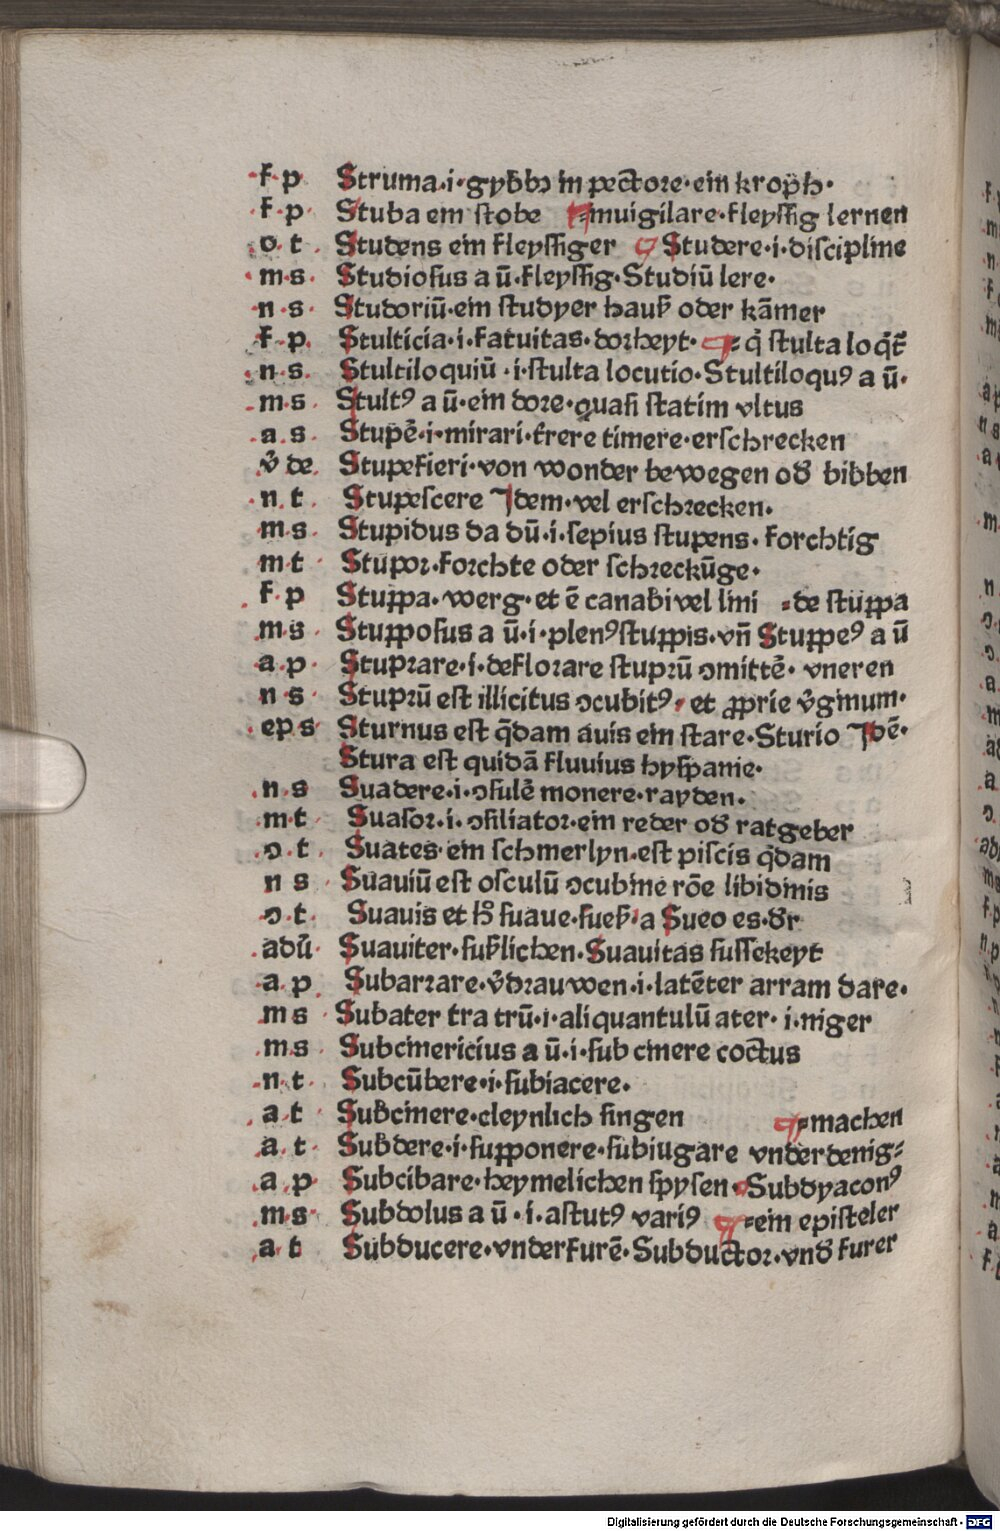 ·f·p· Struma·i·gybb9 in pectore·ein kroph·
·f·p· Stuba ein stobe ¶=inuigilare·fleyssig lernen
·o·t· Studens ein fleyssiger ¶ Studere·i·discipline
·m·s· Studiosus a ū·fleyssig·Studiū lere·
·n·s· Studoriū·ein studyer hauß oder kāmer
·f·p· Stulticia·i·fatuitas·dorheyt· ¶= q̄ stulta loq̄t̄
·n·s· Stultiloquiū·i·stulta locutio·Stultiloquꝰ a ū·
·m·s· Stultꝰ a ū·ein dore·quasi statim vltus
·a·s· Stupē·i·mirari·trere timere·erschrecken
v̄ de Stupefieri·von wonder bewegen od̄ bibben
·n·t· Stupescere Idem·vel erschrecken·
m·s· Stupidus da dū·i·sepius stupens·forchtig
m t· Stupor·forchte oder schreckūge·
·f·p Stuppa·werg·et ē canabi vel lini =de stuppa
·m·s· Stupposus a ū·i·plenꝰ stuppis·vn̄ Stuppeꝰ a ū
·a·p· Stuprare·i·deflorare stuprū ꝯmittē·vneren
·n s· Stuprū est illicitus ꝯcubitꝰ· et ꝓprie v̄ginum·
·ep s· Sturnus est q̄dam auis ein stare·Sturio Idē·
Stura est quidā fluuius hyspanie·
·n·s Suadere·i·ꝯsulē monere·rayden·
·m·t· Suasor·i·ꝯsiliator·ein reder od̄ ratgeber
·ꝯ·t· Suates·ein schmerlyn·est piscis q̄dam
n s· Suauiū est osculū ꝯcubine rōe libidinis
·ꝯ·t· Suauis et h̄ suaue·sueß·a Sueo es·d̄r
·adū· Suauiter·sußlichen·Suauitas sussekeyt
·a·p· Subarrare·v̄drauwen·i·latēter arram dare·
·m s· Subater tra trū·i·aliquantulū ater·i·niger
·m·s· Subcinericius a ū·i·sub cinere coctus
·n·t· Subcūbere·i·subiacere·
·a·t· Subcinere·cleynlich singen ¶=machen
·a·t· Subdere·i·supponere·subiugare vnderdenig=
·a·p· Subcibare·heymelichen spysen·Subdyaconꝰ
·m·s· Subdolus a ū·i·astutꝰ variꝰ ¶=ein episteler
·a·t Subducere·vnderfurē·Subductor·vnd̄ furer
Digitalisierung gefördert durch die Deutsche Forschungsgemeinschaft - DFG